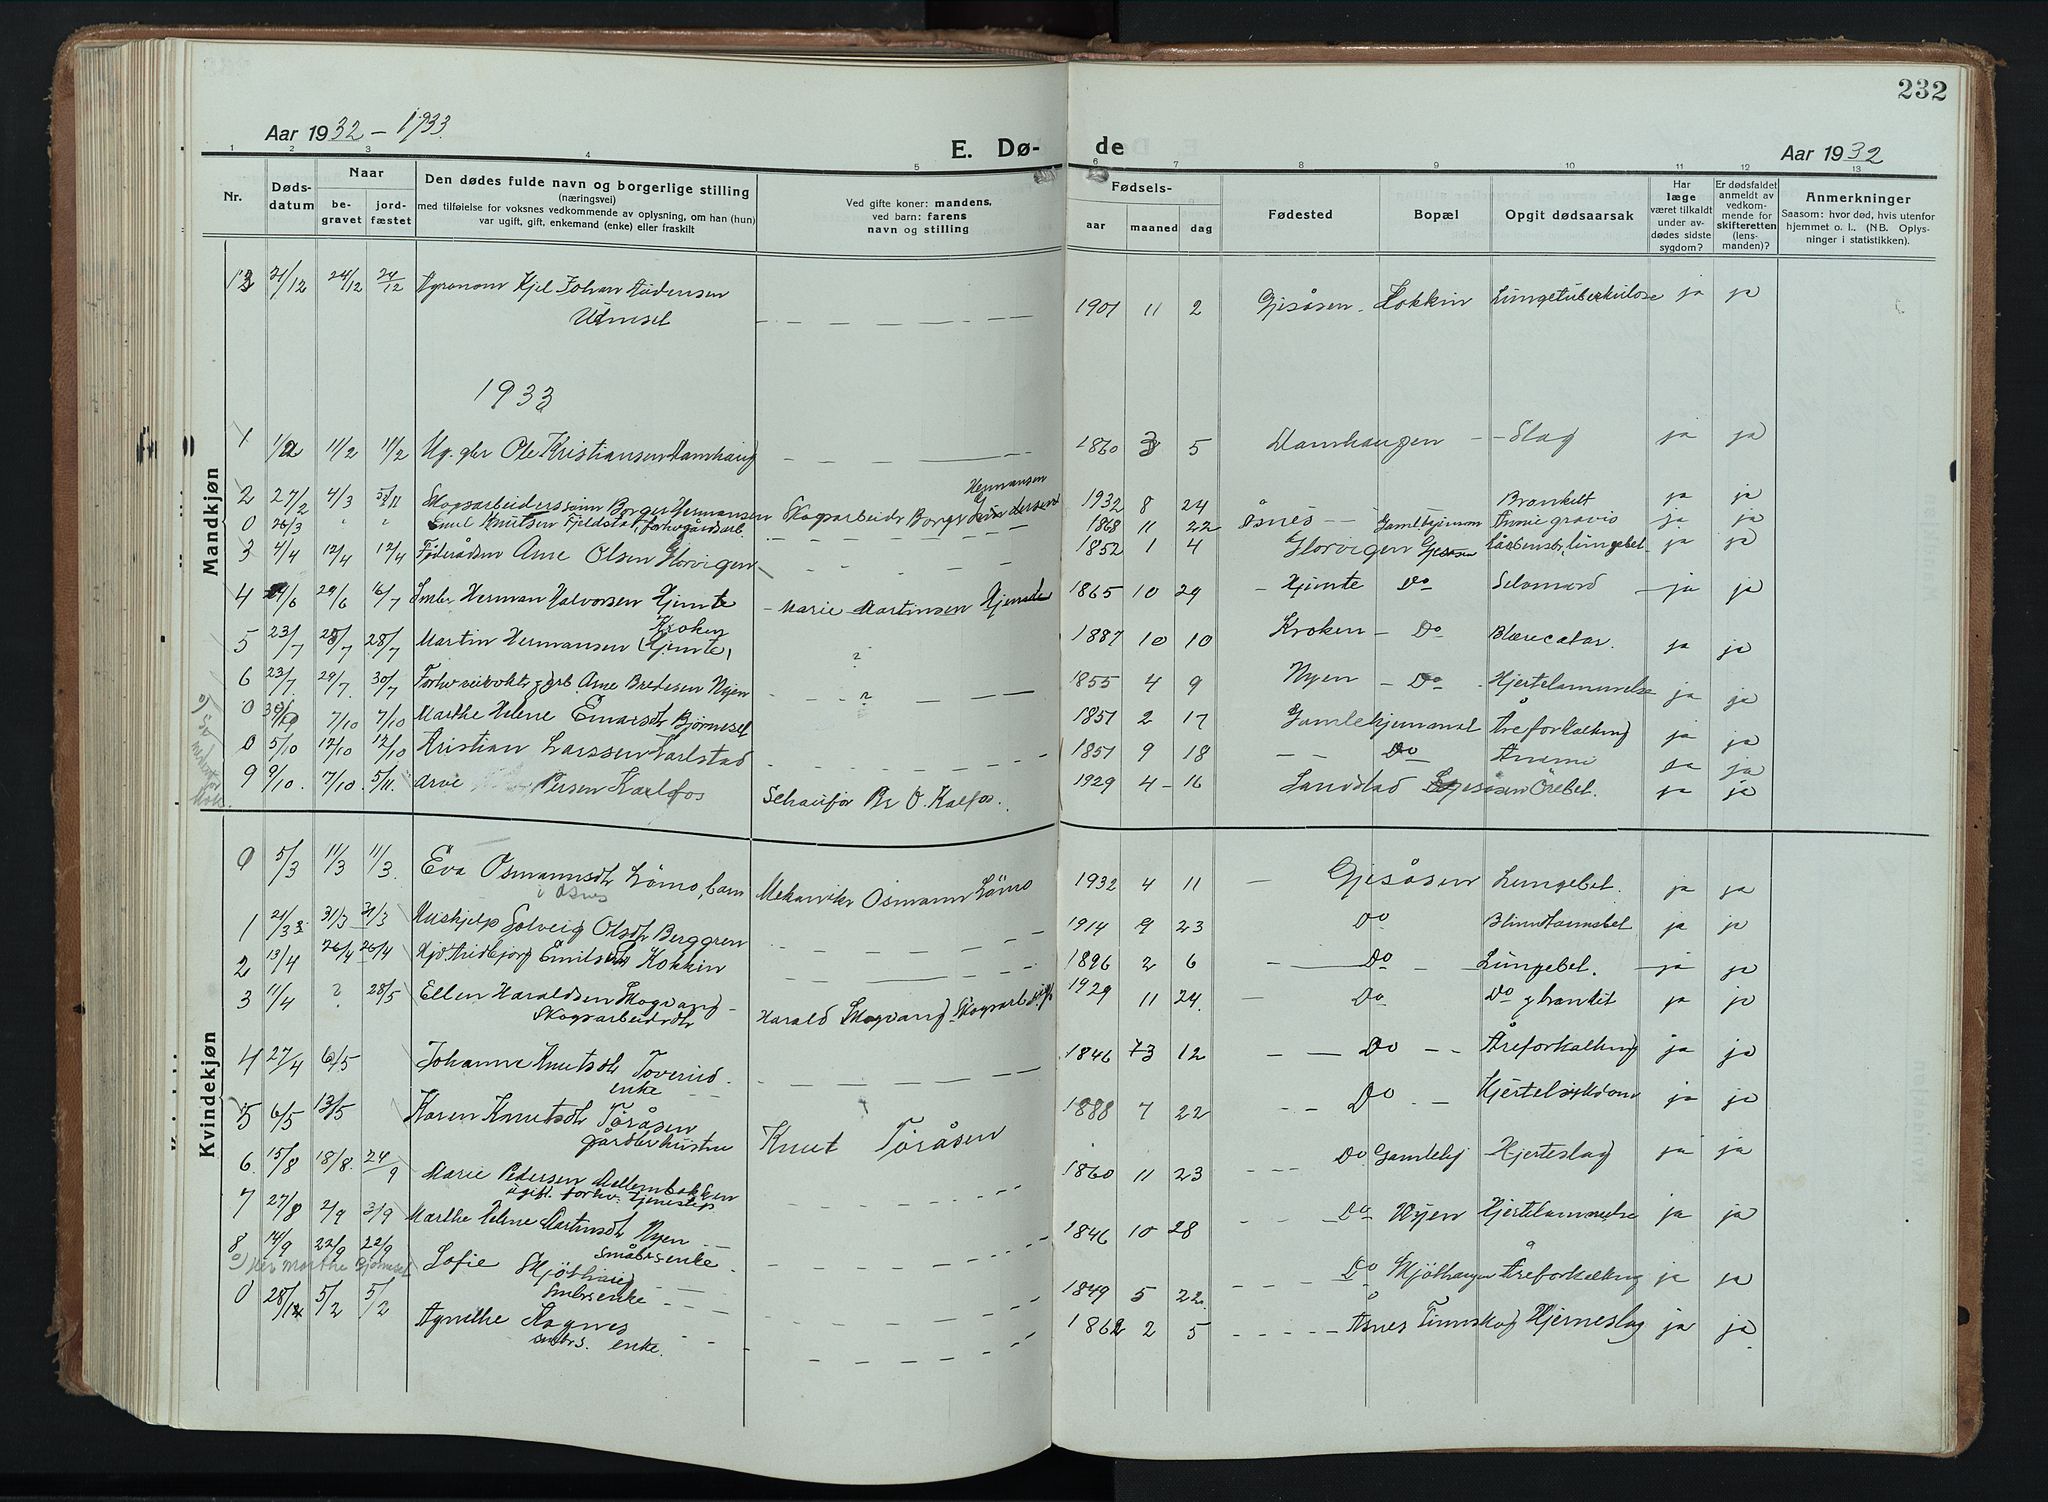 232
Aar 1932 - 1933.
E. Dø-
de
Aar 1932
1 2 3 4 5 6 7 8 9 10 11 12 13
Nr.
Døds-
datum
Naar
be-
gravet
jord-
fæstet
Den dødes fulde navn og borgerlige stilling
(næringsvei)
med tilføielse for voksnes vedkommende av oplysning, om han (hun)
var ugift, gift, enkemand (enke) eller fraskilt
Ved gifte koner: mandens,
ved barn: farens
navn og stilling
Fødsels-
aar maaned dag
Fødested
Bopæl
Opgit dødsaarsak
Har
læge
været tilkaldt
under av-
dødes sidste
sygdom?
Er dødsfaldet
anmeldt av
vedkom-
mende for
skifteretten
(lens-
manden)?
Anmerkninger
Saasom: hvor død, hvis utenfor
hjemmet o. l.. (NB. Oplys-
ninger i statistikken).
Mandkjøn
13 21/12 24/12 24/12 Agronom Kjel Johan 1901 11 2 Gjesåsen Hokkin Lungetuberkulose ja ja
1933
1 11/2 11/2 Ole Kristiansen Damhaug 1860 3 5 Damhaugen Slag ja ja
2 27/2 4/3 Skogsarbeiderssønn Borger Hermansen Skogsarbeider Borger Hermansen 1932 8 24 Bronkitt ja ja
0 26/3 " " Emil Knutsen Fjeldstad, forhv gårdsarb. 1868 11 22 Åsnes Gamlehjemmet ja ja
3 4/4 12/4 12/4 Føderådsm Arne Olsen Horvigen 1852 1 4 Horvigen Gjesåsen Lungebet. ja ja
4 29/6 Herman Halvorsen Hjemte Marie Martinsen 1865 10 29 Hjemte Do Selvmord ja ja
5 23/7 28/7 28/7 Martin Hermansen Kroken (Hjemte) ? 1887 10 10 Kroken Do Blærecatar. ja ja
6 23/7 29/7. 30/7 Forhv veivokter Arne Bredesen Nyen ? 1855 4 9 Nyen Do Hjertelammelse ja ja
0 7/10 7/10 Marthe Helene Bjørnesel 1851 2 17 Gamlehjemmet Åreforkalkning ja ja
0 5/10 12/10 12/10 Kristian Larssen Karlstad 1851 9 18 Do ja ja
9 9/10. 7/10. 5/11. Arve Persen Karlfos Schaufør Pr O. Kalfos. 1929 4 16 Sandstad Gjesåsen Ørebet. ja ja
Kvindekjøn
0 5/3 11/3 11/3 Eva Osmannsdtr Lömo, barn Mekaniker Osmann Lömo 1932 4 11 Gjesåsen Lungebet. ja ja
i Åsnes
1 31/3 31/3 Hushjelp Solveig Olsdtr Berggren 1914 9 23 Do Blindtarmsbet ja ja
2 13/4 26/4 26/4 Hokkin 1896 2 6 Do Lungebet. ja ja
3 11/4 ? 28/5 Ellen Haraldsen Skogvang Harald Skogvang, Skogsarbeider 1929 11 24 Do Do ja ja
Skogsarbeidsdtr
4 27/4 6/5 Johanne Knutsdtr Toverud. 1846 3 12 Do Åreforkalkning ja ja
enke
5 6/5 13/5 Karen Knutsdtr Toråsen Knut Toråsen 1888 7 22 Do Hjertelsykdom ja ja
gårdbrhustru
6. 15/8 18/8. 24/9 Marie Pedersen Mellembakken 1860 11 23 Do Gamlehj Hjerteslag ja ja
ugift forhv. tjenestep
7 27/8 2/9 3/9 Marthe Helene Martinsdtr Nyen 1846 10 28 Do Nyen Hjertelammelse ja ja
småbrs enke
8 14/9 22/9 22/9 Sofie Mjöthaug 1849 5 22 Do Mjöthaugen Åreforkalkning ja ja
Smbrs enke
Marthe Bjørnesel
0 28/12 5/2 5/2 Agnethe Aagnes 1862 2 5 Åsnes Finnskog Hjerneslag ja ja
smbrs. enke.